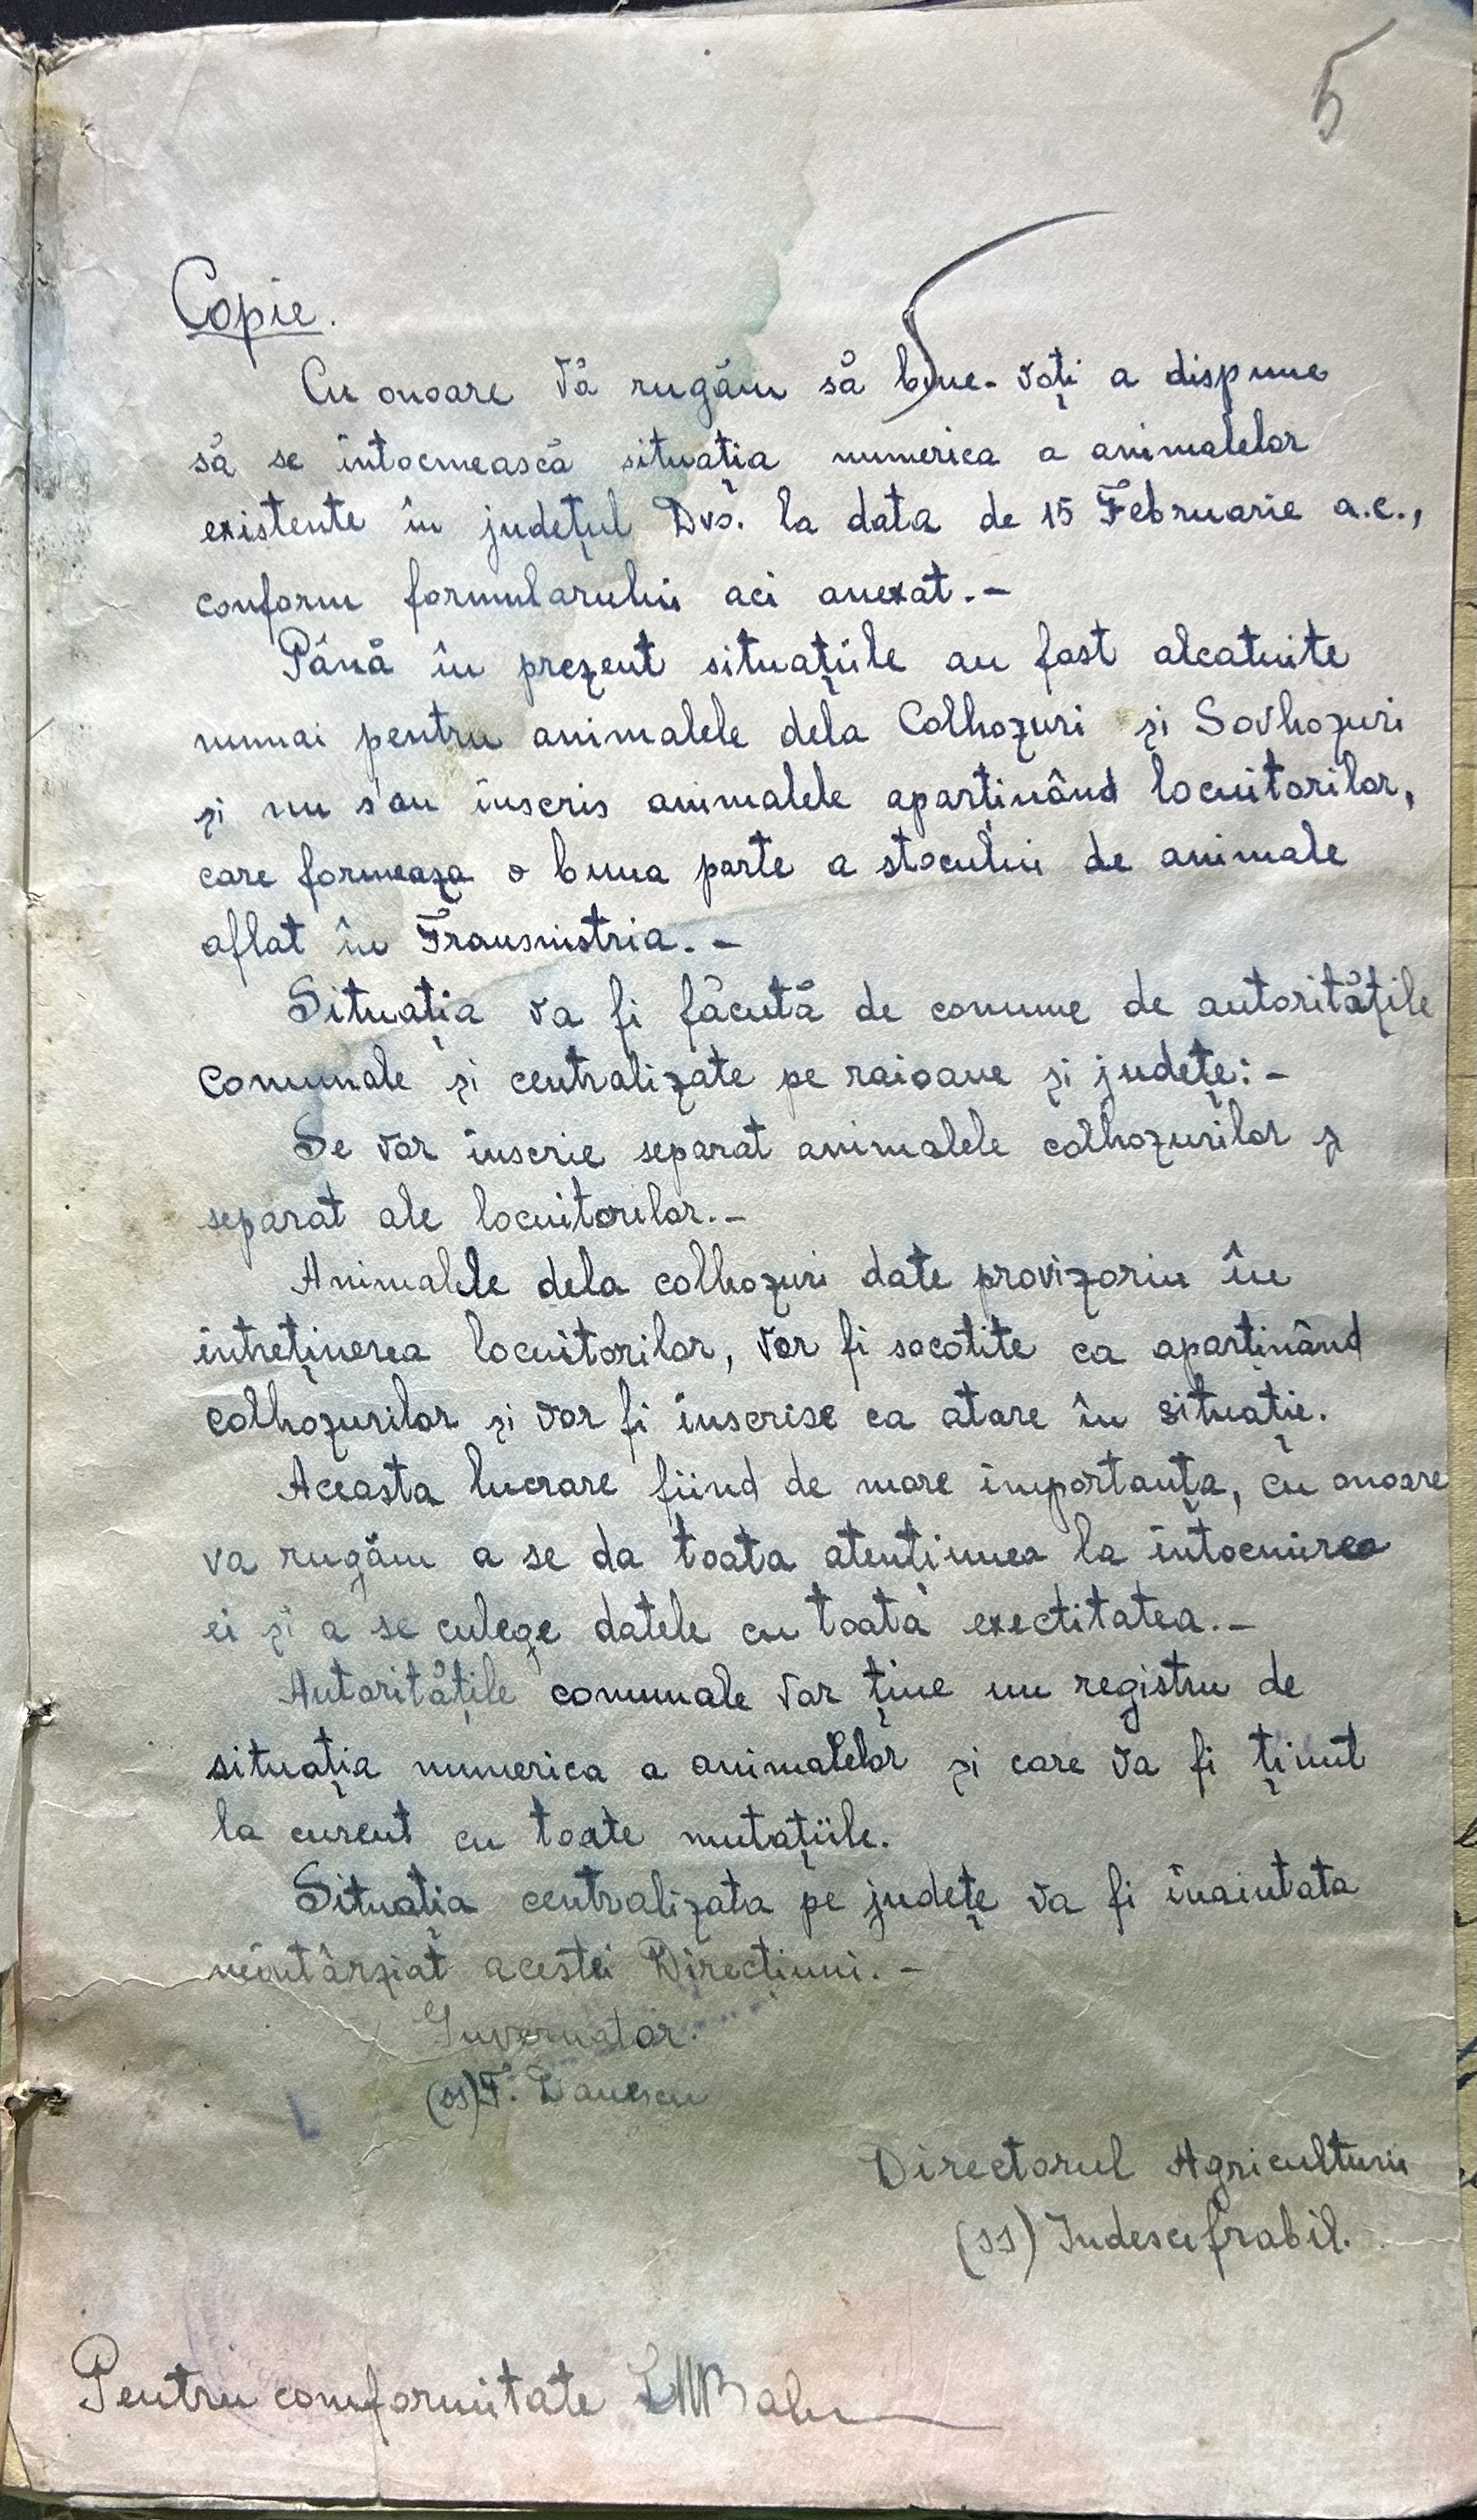 5
Copie.
Cu onoare Vă rugăm să bine-voți a dispune
să se întocmească situația numerica a animalelor
existente în județul Dvs. la data de 15 Februarie a.c.,
conform formularului aci anexat.-
Până în prezent situațiile au fost alcatuite
numai pentru animalele dela Colhozuri și Sovhozuri
și nu s'au înscris animalele aparținând locuitorilor,
care formeaza o buna parte a stocului de animale
aflat în Transnistria.-
Situația va fi făcută de comune de autoritățile
comunale și centralizate pe raioane și județe:-
Se vor înscrie separat animalele colhozurilor ș
separat ale locuitorilor.-
Animalele dela colhozuri date provizoriu în
întreținerea locuitorilor, vor fi socotite ca aparținând
colhozurilor și vor fi înscrise ca atare în situație.
Aceasta lucrare fiind de mare importanța, cu onoare
va rugăm a se da toata atențiunea la întocmirea
ei și a se culege datele cu toată exectitatea.-
Autoritățile comunale vor ține un registru de
situația numerica a animalelor și care va fi ținut
la curent cu toate mutațiile.
Situația centralizata pe județe va fi înaintata
neîntârziat acestei Direcțiuni.-
Guvernator.
(ss) T. Danescu
Directorul Agriculturii
(ss) Indescifrabil.
Pentru comformitate